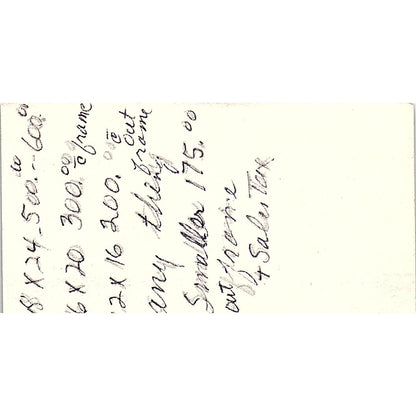 8 X 24 - 500.00 -- 600.00
6 X 20 300.00 c frame
2 X 16 200.00 c out frame
any thing
Smaller 175.00
out frame
+ Sales Tax